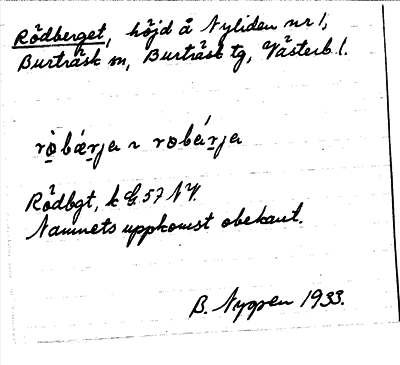 Rödberget, höjd å Nyliden nr 1,
Burträsk sn, Burträsk tg, Västerb. l.
rò̤bǽrja ~ robǽrja
Rödbgt, k E. 57 NV.
Namnets uppkomst obekant.
B. Nygren 1933.